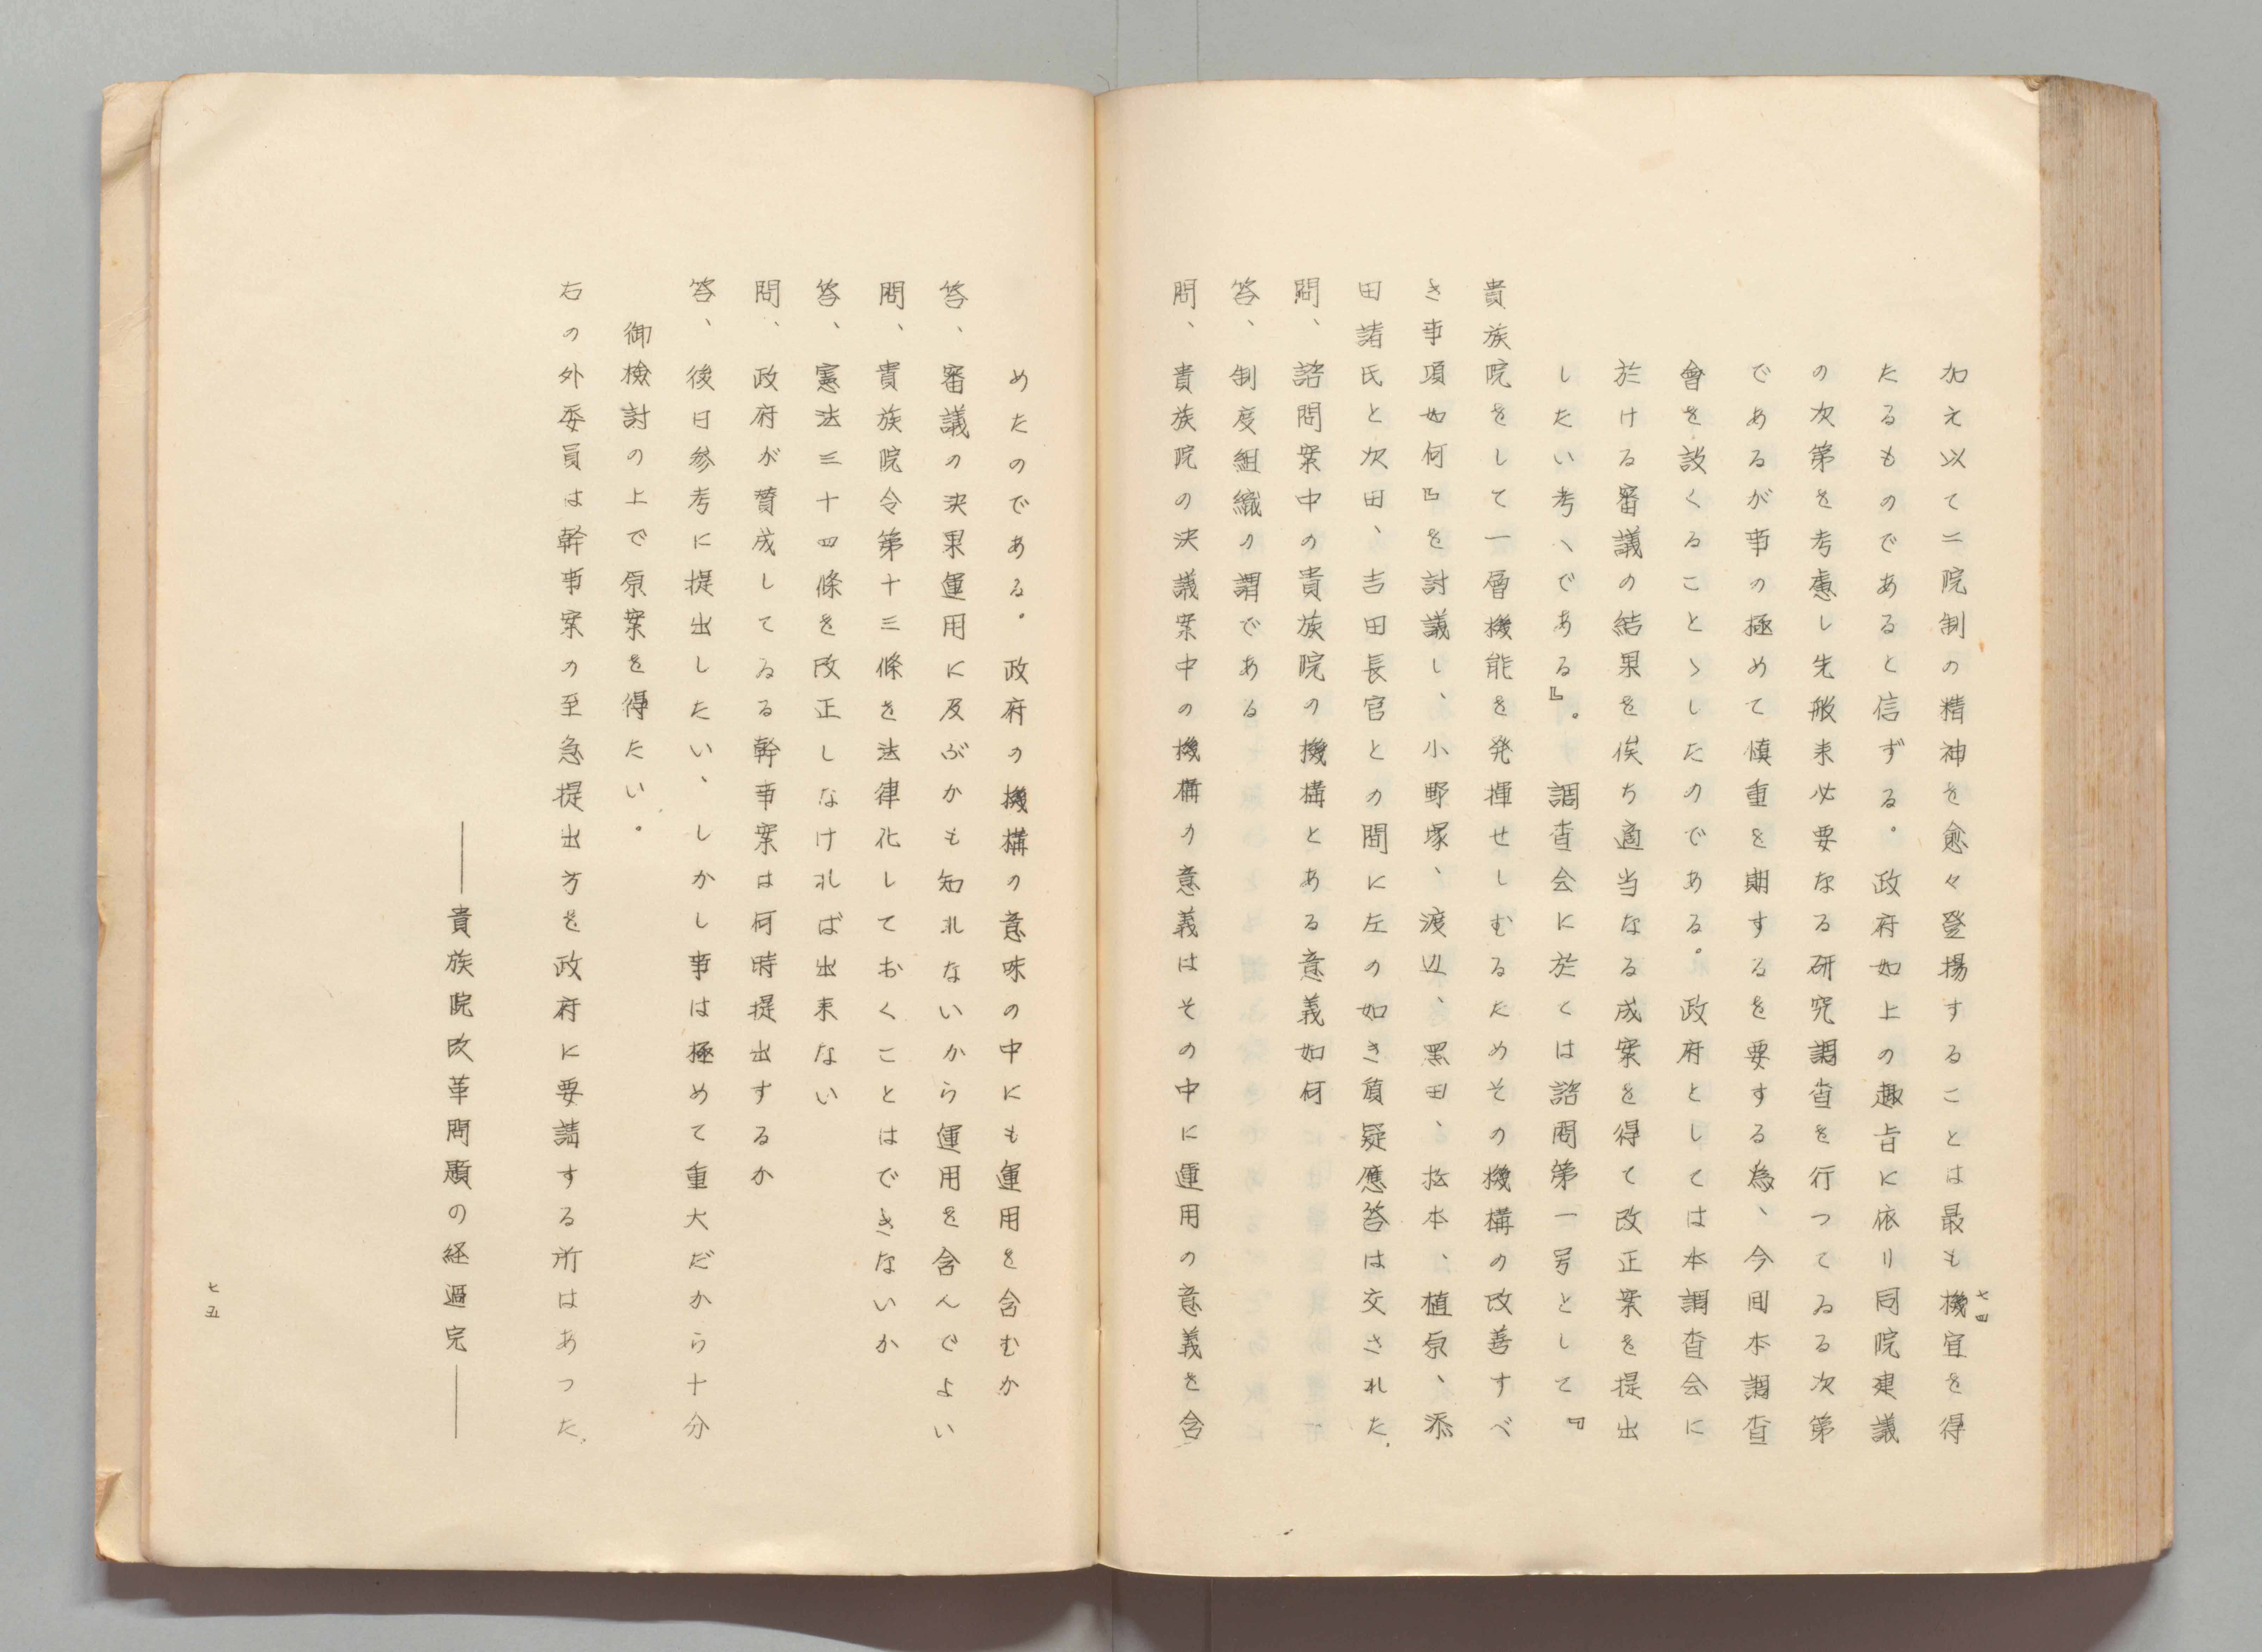 加え以て二院制の精神を愈々登揚することは最も機宜を得
たるものであると信ずる。政府如上の趣旨に依り同院建議
の次第を考慮し先般来必要なる研究調査を行つてゐる次第
であるが事の極めて慎重を期するを要する為、今回本調査
會を設くることゝしたのである。政府としては本調査会に
於ける審議の結果を俟ち適当なる成案を得て改正案を提出
したい考へである』。調査会に於ては諮問第一号として『
貴族院をして一層機能を発揮せしむるためその機構の改善すべ
き事項如何』を討議し、小野塚、渡辺、黒田、松本、植原、添
田諸氏と次田、吉田長官との間に左の如き質疑應答は交された、
問、諮問案中の貴族院の機構とある意義如何
答、制度組織の謂である
問、貴族院の決議案中の機構の意義はその中に運用の意義を含
七四
めたのである。政府の機構の意味の中にも運用を含むか
答、審議の決果運用に及ぶかも知れないから運用を含んでよい
問、貴族院令第十三條を法律化しておくことはできないか
答、憲法三十四條を改正しなければ出来ない
問、政府が賛成してゐる幹事案は何時提出するか
答、後日参考に提出したい、しかし事は極めて重大だから十分
御檢討の上で原案を得たい。
右の外委員は幹事案の至急提出方を政府に要請する所はあつた、
――貴族院改革問題の経過完――
七五